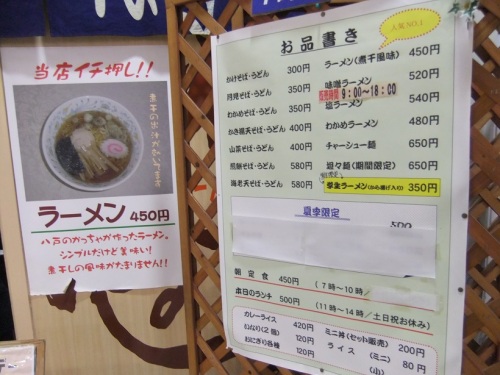 当店イチ押し!!
煮干の出汁がきいてます
ラーメン 450円
八戸のかっちゃが作ったラーメン。
シンプルだけど美味い!
煮干しの風味がたまりません!!
人気NO.1
お品書き
かけそば・うどん 300円
月見そば・うどん 350円
わかめそば・うどん 350円
かき揚天そば・うどん 400円
山菜そば・うどん 480円
海老天そば・うどん 580円
ラーメン(煮干風味) 450円
味噌ラーメン 520円
9:00~18:00
塩ラーメン 540円
わかめラーメン 480円
チャーシュー麺 650円
坦々麺(期間限定) 650円
学生ラーメン(から揚げ入り) 350円
夏季限定
朝定食 450円 (7時~10時/
本日のランチ 500円 (11時~14時/土日祝お休み)
カレーライス 420円
いなり(2個) 120円
おにぎり各種 120円
ミニ丼(セット販売) 200円
ライス (ミニ) 80円
(小)